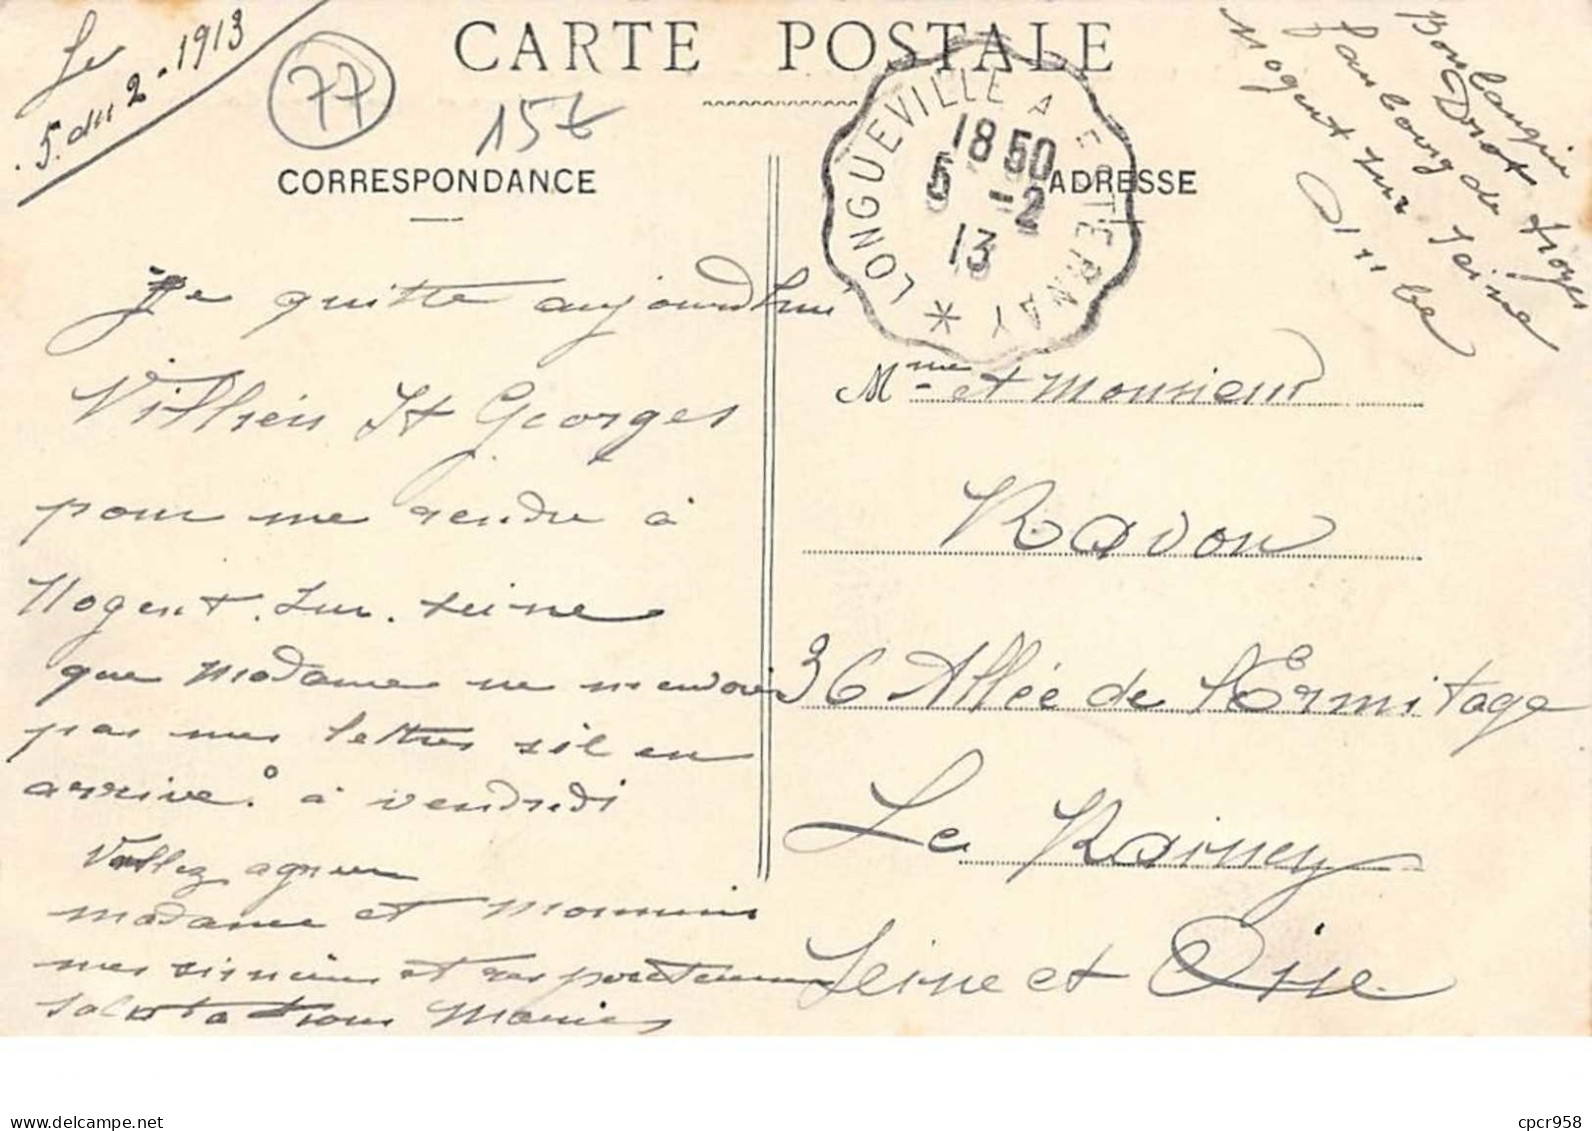 Le
5. du 2 - 1913
77
CARTE POSTALE
15t
LONGUEVILLE A ESTERNAY *
18 50
5 -2
13
Boulangrie
Drot
faubourg de troyes
Nogent sur Seine
Aube
CORRESPONDANCE
ADRESSE
Je quitte aujourdhui
Villien St Georges
pour me rendre à
Nogent. sur. seine
que Madame ne m envoie
pas mes lettres sil en
arrive. à vendredi
Vellez agreer
madame et Monsieur
mes sincères et respectueuse
salutations Marie
Mme et Monsieur
Ravon
36 Allée de l'Ermitage
Le Rainey
Seine et Oise
cpcr958